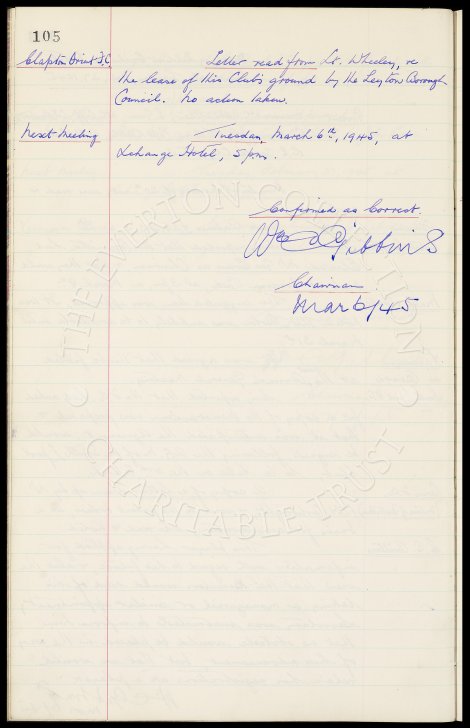 105
Clapton Orient F.C. Letter read from Lt. Wheeley, re
the lease of this Clubs ground by the Leyton Borough
Council. No action taken.
Next Meeting Tuesday, March 6th, 1945, at
Exhange Hotel, 5 p.m.
Confirmed as Correct.
Wm C Gibbins
Chairman.
Mar 6/45
THE EVERTON COLLECTION
CHARITABLE TRUST